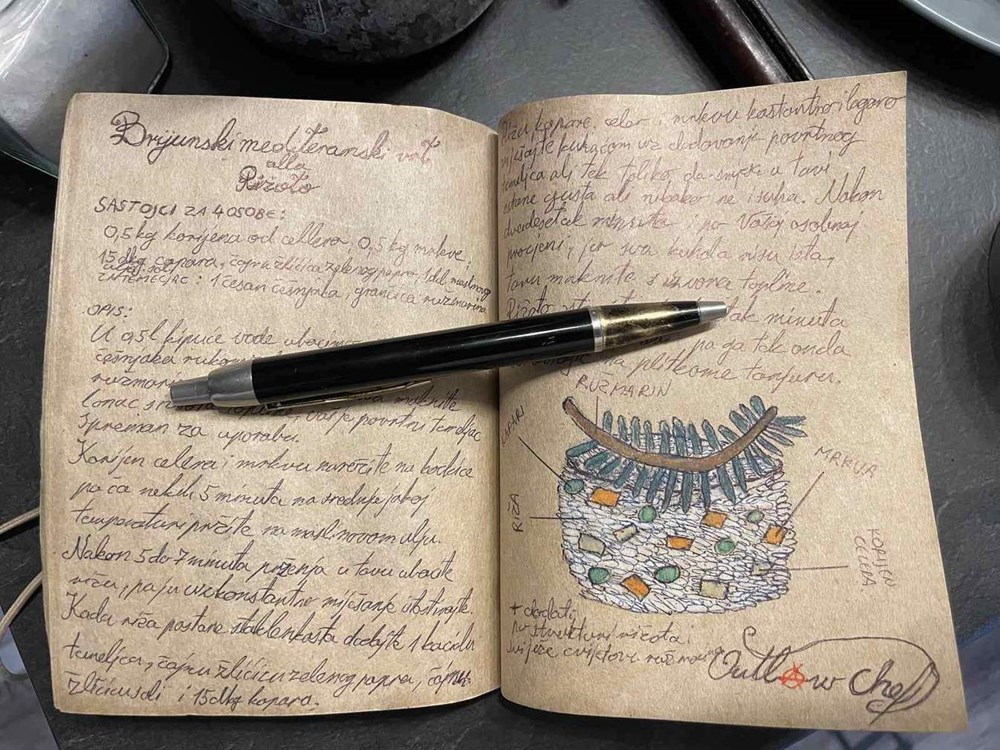 Brijunski mediteranski vrt
alla
Rižoto
SASTOJCI ZA 4 OSOBE:
0,5 kg korijena od cellera, 0,5 kg mrkve,
15 dkg capara, čajna žličica zelenog papra, 1 del maslinovog
ZA TEMELJAC: 1 česan češnjaka, grančica ruzmarina
OPIS:
U 0,5 l kipuće vode ubacimo
češnjaka
ruzmarin
lonac s povrtni temeljac
spreman za uporabu.
Korijen celera i mrkvu narežite na kockice
pa ća nekih 5 minuta na srednje jakoj
temperaturi pržite na maslinovom ulju.
Nakon 5 do 7 minuta prženja u tavu ubacite
rižu, pa ju uz konstantno miješanje
Kada riža postane staklenkasta dodajte 1
temeljca, čajnu žličicu zelenog papra, čajnu
žličicu soli i 15 dkg kapara.
Rižu, kapare, celer i mrkvu konstantno i lagano
miješajte kuhačom uz dodavanje povrtnog
temeljca ali tek toliko da u tavi
ostane gusta ali nikako ne i suha. Nakon
dvadesetak minuta, po Vašoj osobnoj
procjeni, jer sva kuhala nisu ista,
tavu maknite s izvora topline.
Rižoto minuta
pa ga tek onda
na plitkome tanjuru.
RUŽMARIN
KAPARI
MRKVA
RIŽA
KORIJEN
CELERA
+ dodati
po strukturi rižota i
svježe cvjetove ružmarina
Outlaw Chef